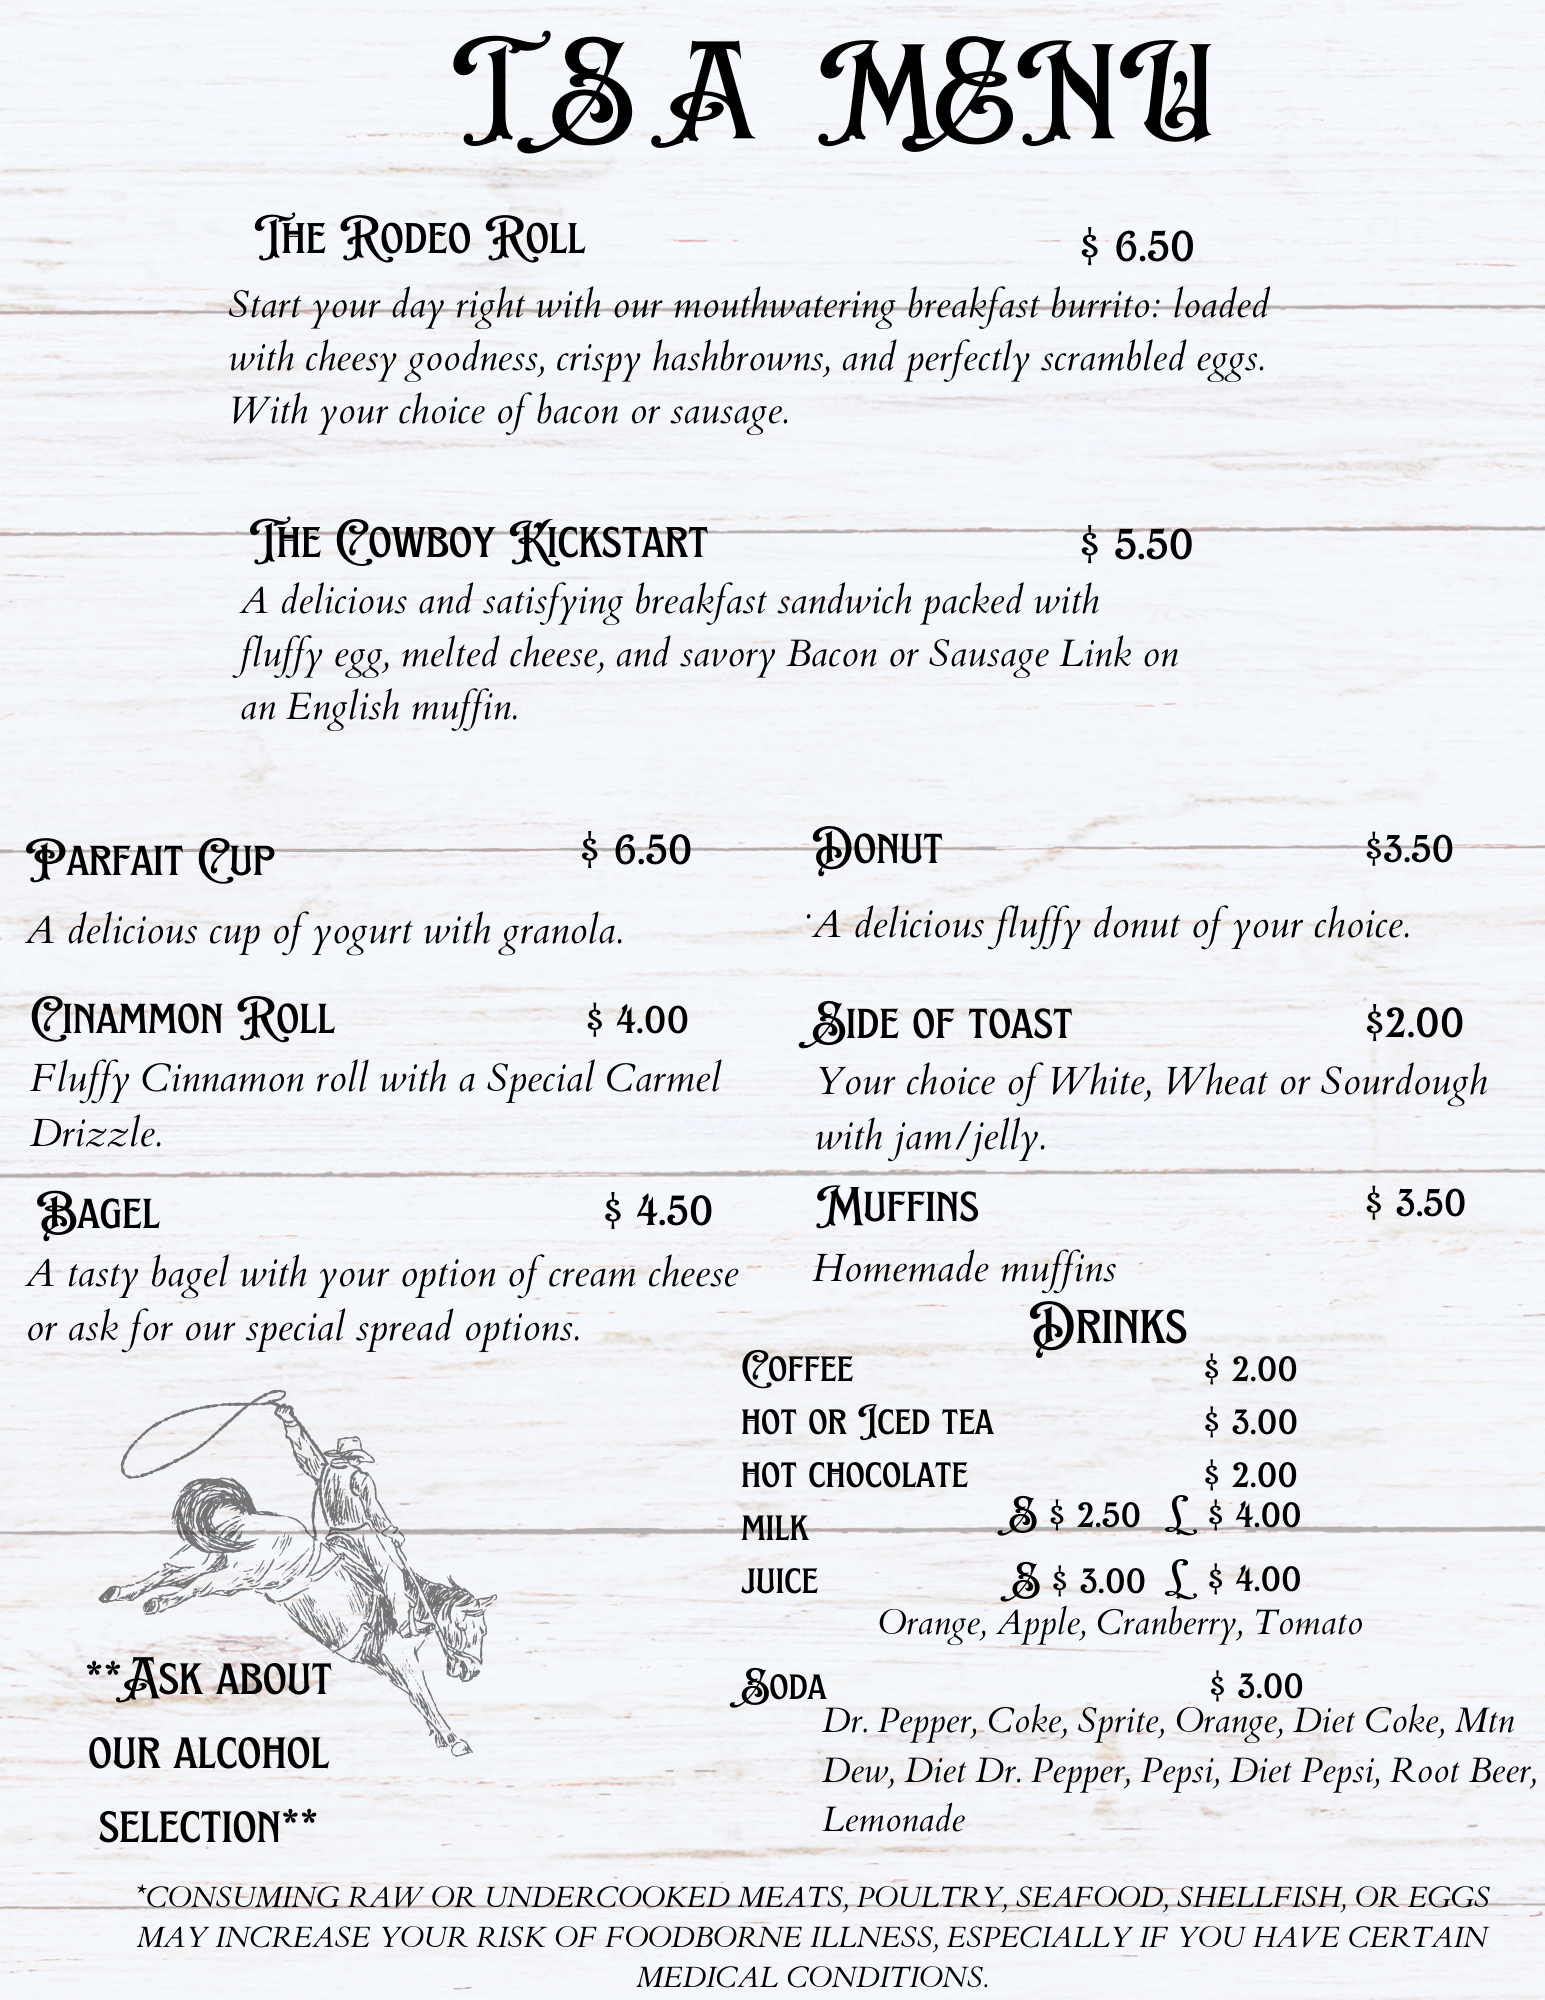 TSA MENU
The Rodeo Roll $ 6.50
Start your day right with our mouthwatering breakfast burrito: loaded
with cheesy goodness, crispy hashbrowns, and perfectly scrambled eggs.
With your choice of bacon or sausage.
The Cowboy Kickstart $ 5.50
A delicious and satisfying breakfast sandwich packed with
fluffy egg, melted cheese, and savory Bacon or Sausage Link on
an English muffin.
Parfait Cup $ 6.50
A delicious cup of yogurt with granola.
Cinammon Roll $ 4.00
Fluffy Cinnamon roll with a Special Carmel
Drizzle.
Bagel $ 4.50
A tasty bagel with your option of cream cheese
or ask for our special spread options.
Donut $3.50
·A delicious fluffy donut of your choice.
Side of toast $2.00
Your choice of White, Wheat or Sourdough
with jam/jelly.
Muffins $ 3.50
Homemade muffins
Drinks
Coffee $ 2.00
hot or Iced tea $ 3.00
hot chocolate $ 2.00
milk S $ 2.50 L $ 4.00
juice S $ 3.00 L $ 4.00
Orange, Apple, Cranberry, Tomato
Soda $ 3.00
Dr. Pepper, Coke, Sprite, Orange, Diet Coke, Mtn
Dew, Diet Dr. Pepper, Pepsi, Diet Pepsi, Root Beer,
Lemonade
**Ask about
our alcohol
selection**
*CONSUMING RAW OR UNDERCOOKED MEATS, POULTRY, SEAFOOD, SHELLFISH, OR EGGS
MAY INCREASE YOUR RISK OF FOODBORNE ILLNESS, ESPECIALLY IF YOU HAVE CERTAIN
MEDICAL CONDITIONS.